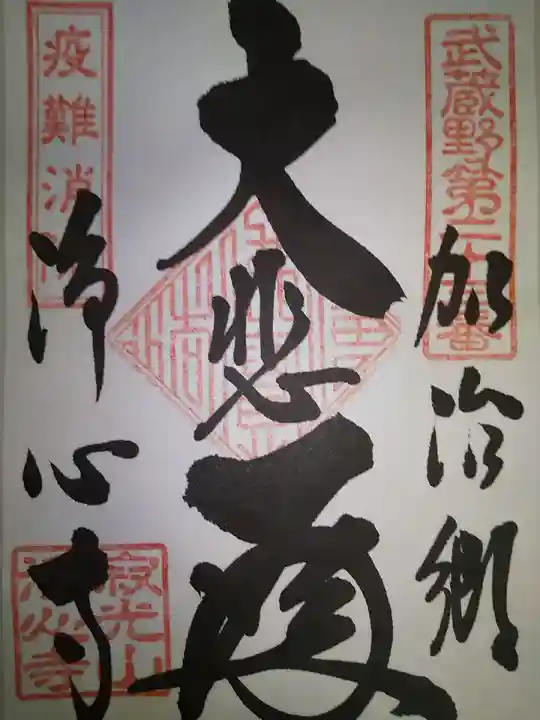 武蔵野第二十三番
加治郷
大悲殿
疫難消
浄心寺
寂光山
浄心寺